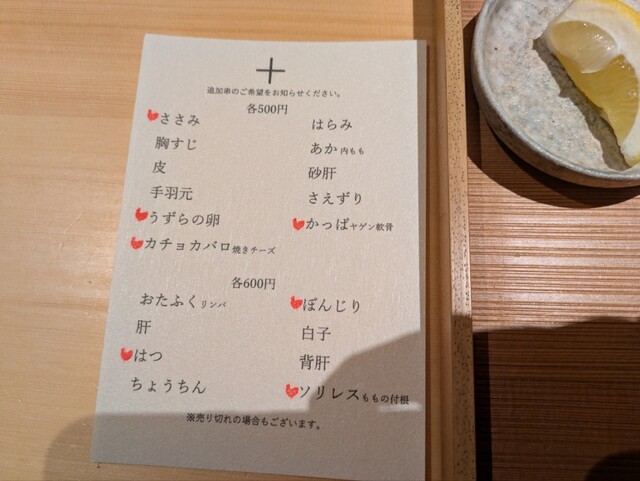 追加串のご希望をお知らせください。
各500円
ささみ
胸すじ
皮
手羽元
うずらの卵
カチョカバロ 焼きチーズ
はらみ
あか 内もも
砂肝
さえずり
かっぱ ヤゲン軟骨
各600円
おたふく リンパ
肝
はつ
ちょうちん
ぼんじり
白子
背肝
ソリレス ももの付根
※売り切れの場合もございます。